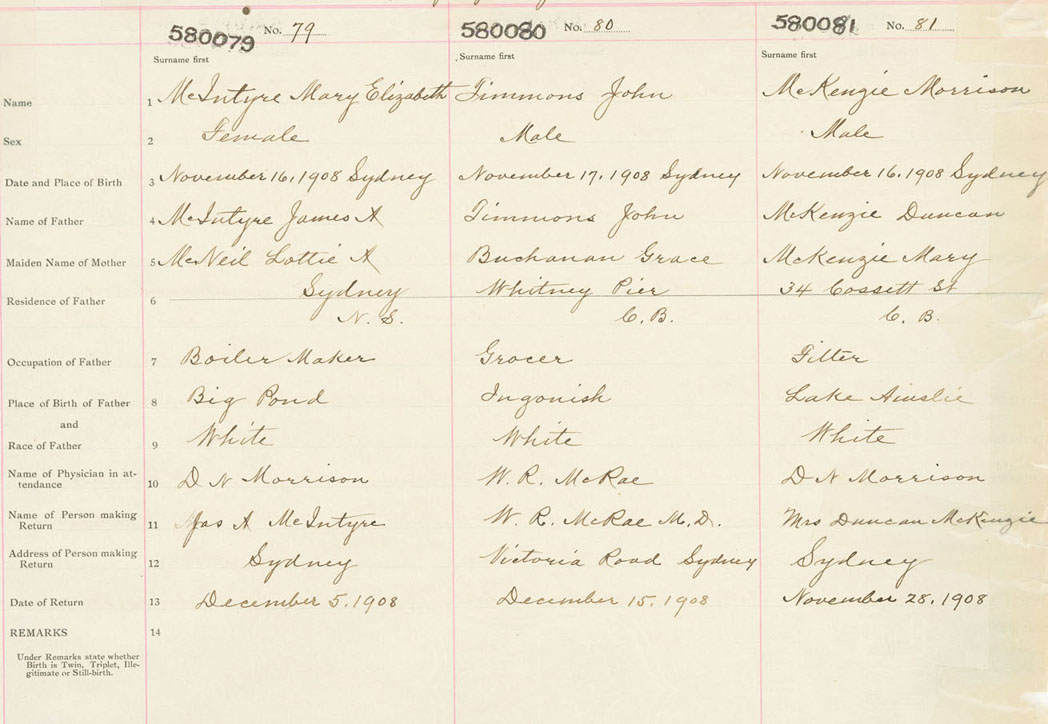 580079 No. 79
580080 No. 80
580081 No. 81
Surname first
Surname first
Surname first
Name 1 McIntyre Mary Elizabeth Timmons John McKenzie Morrison
Sex 2 Female Male Male
Date and Place of Birth 3 November 16, 1908 Sydney November 17, 1908 Sydney November 16, 1908 Sydney
Name of Father 4 McIntyre James A Timmons John McKenzie Duncan
Maiden Name of Mother 5 McNeil Lottie A Buchanan Grace McKenzie Mary
Residence of Father 6 Sydney Whitney Pier 34 Cossett St
N. S. C. B. C. B.
Occupation of Father 7 Boiler Maker Grocer Fitter
Place of Birth of Father 8 Big Pond Ingonish Lake Ainslie
and
Race of Father 9 White White White
Name of Physician in at-
tendance 10 D N Morrison W. R. McRae D N Morrison
Name of Person making
Return 11 Jas A McIntyre W. R. McRae M. D. Mrs Duncan McKenzie
Address of Person making
Return 12 Sydney Victoria Road Sydney Sydney
Date of Return 13 December 5, 1908 December 15, 1908 November 28, 1908
REMARKS 14
Under Remarks state whether
Birth is Twin, Triplet, Ille-
gitimate or Still-birth.